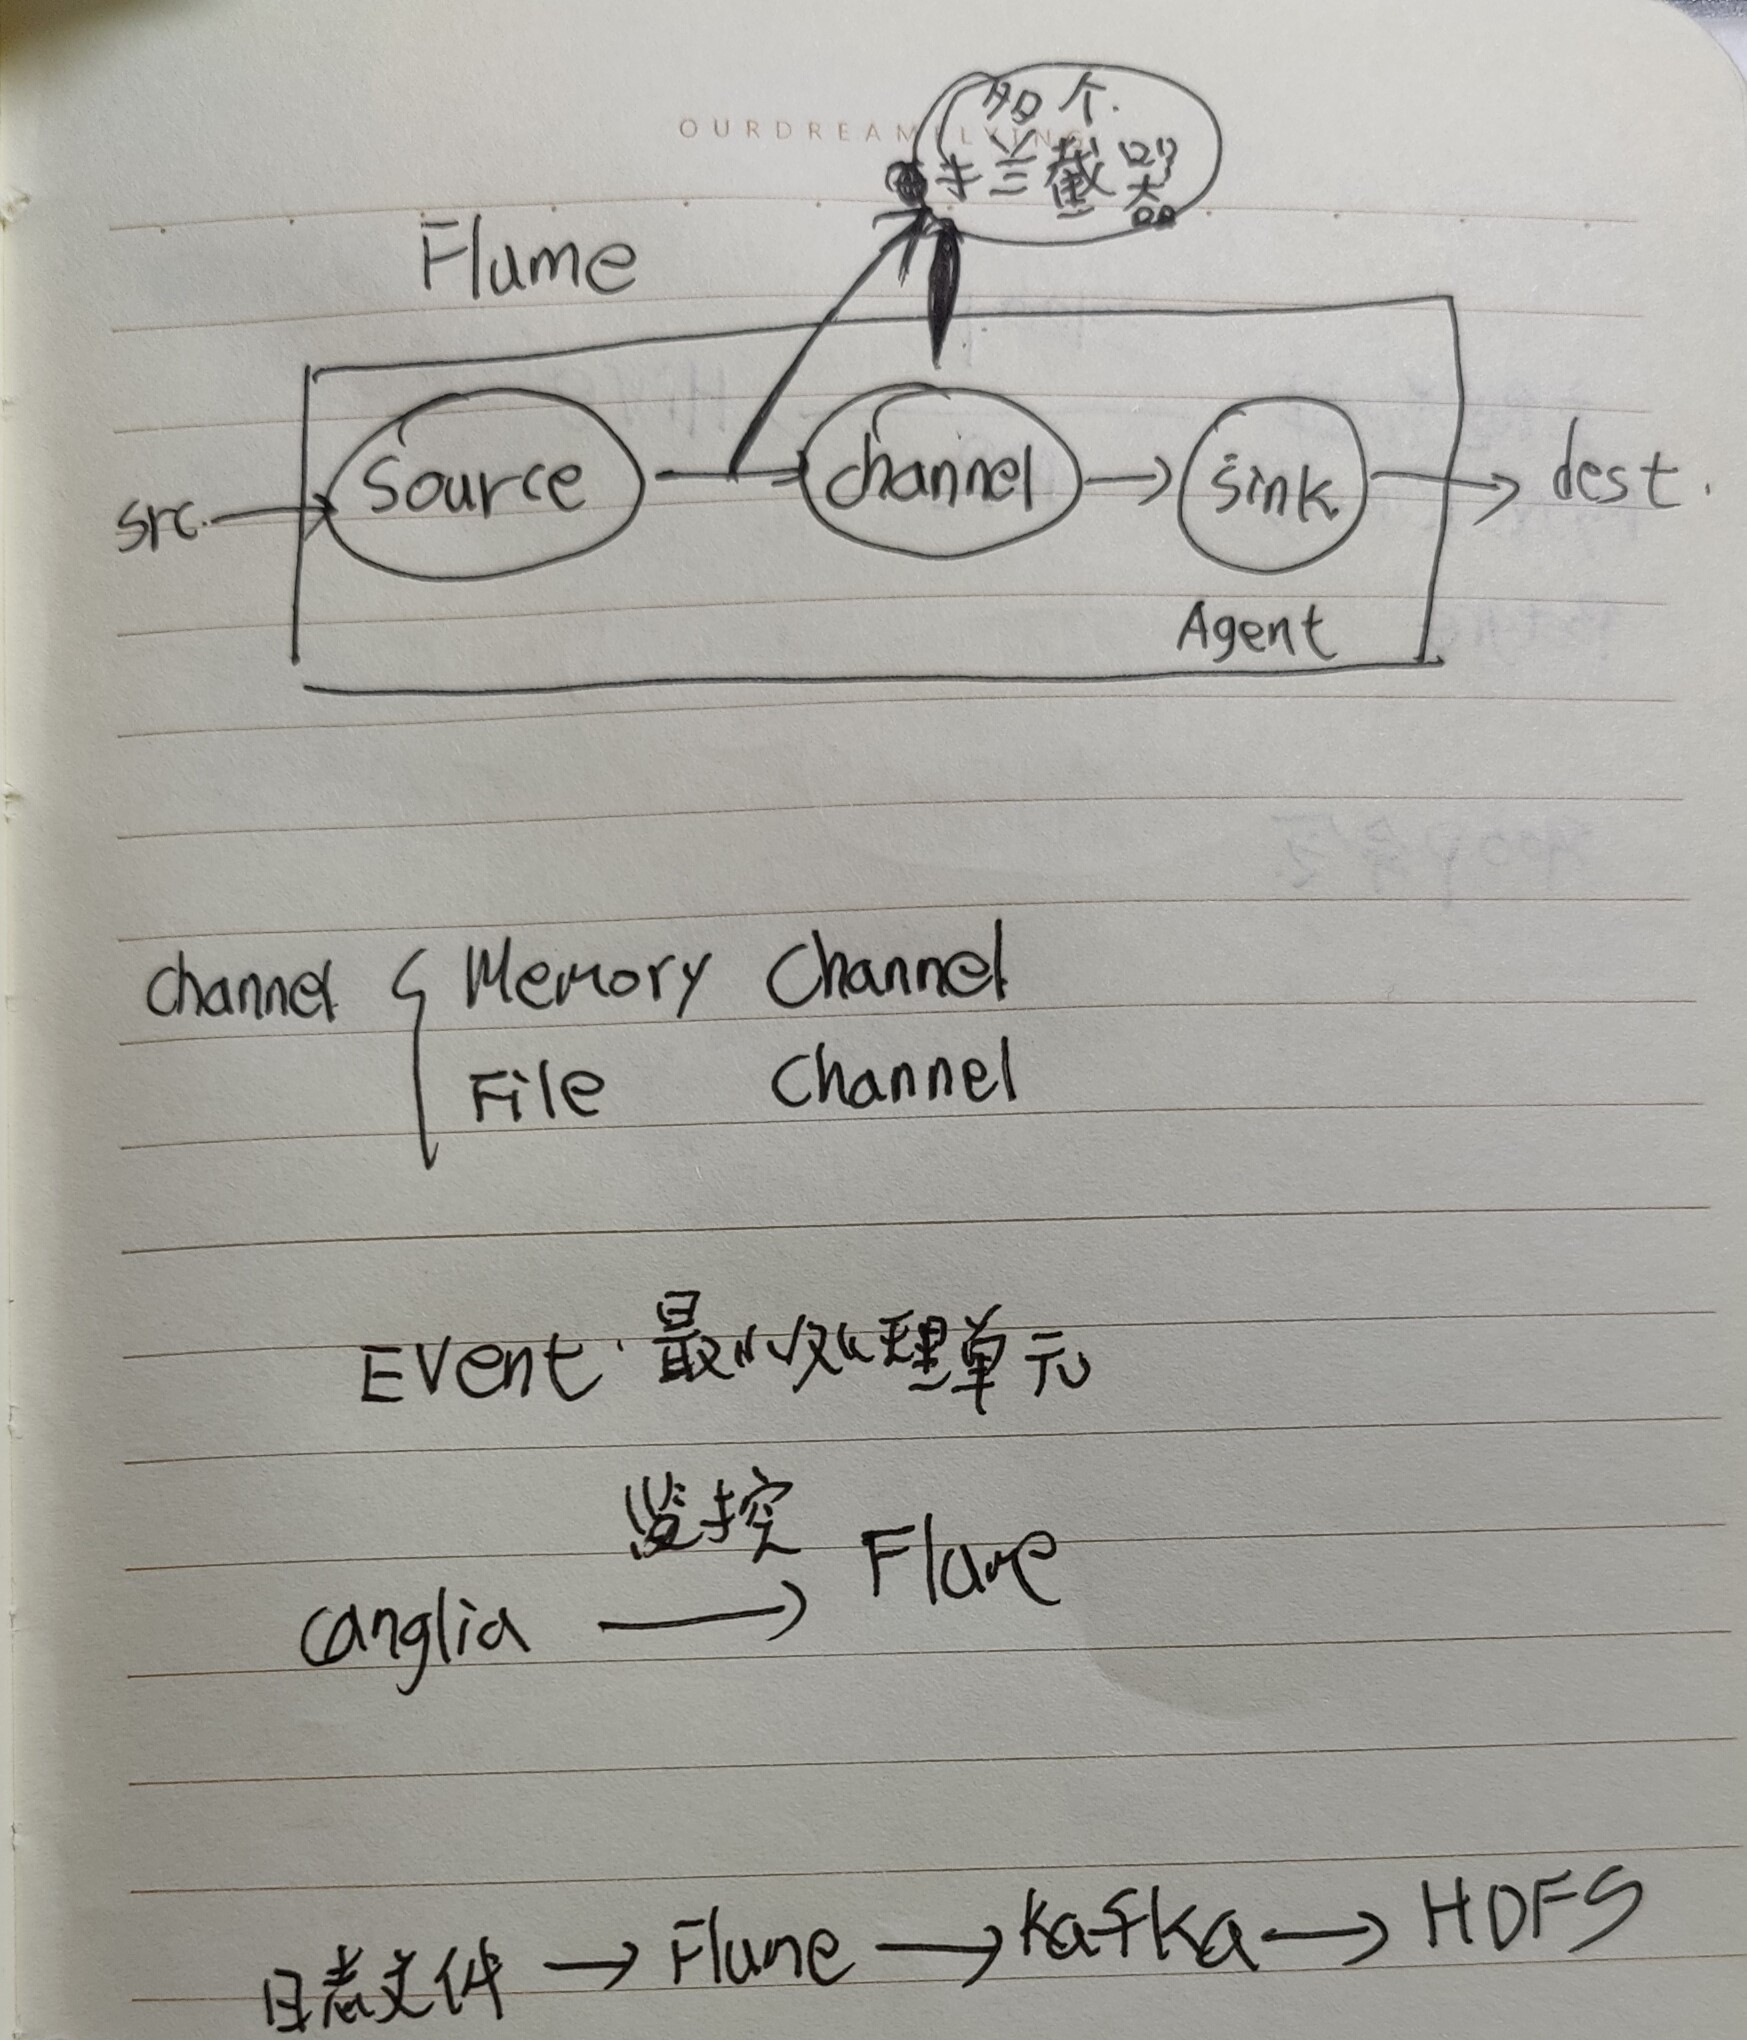 OURDREAMFLYING
多个
拦截器
Flume
src. Source channel sink dest.
Agent
channel { Memory Channel
File Channel
Event. 最小处理单元
监控
Canglia → Flume
日志文件 → Flume → Kafka → HDFS